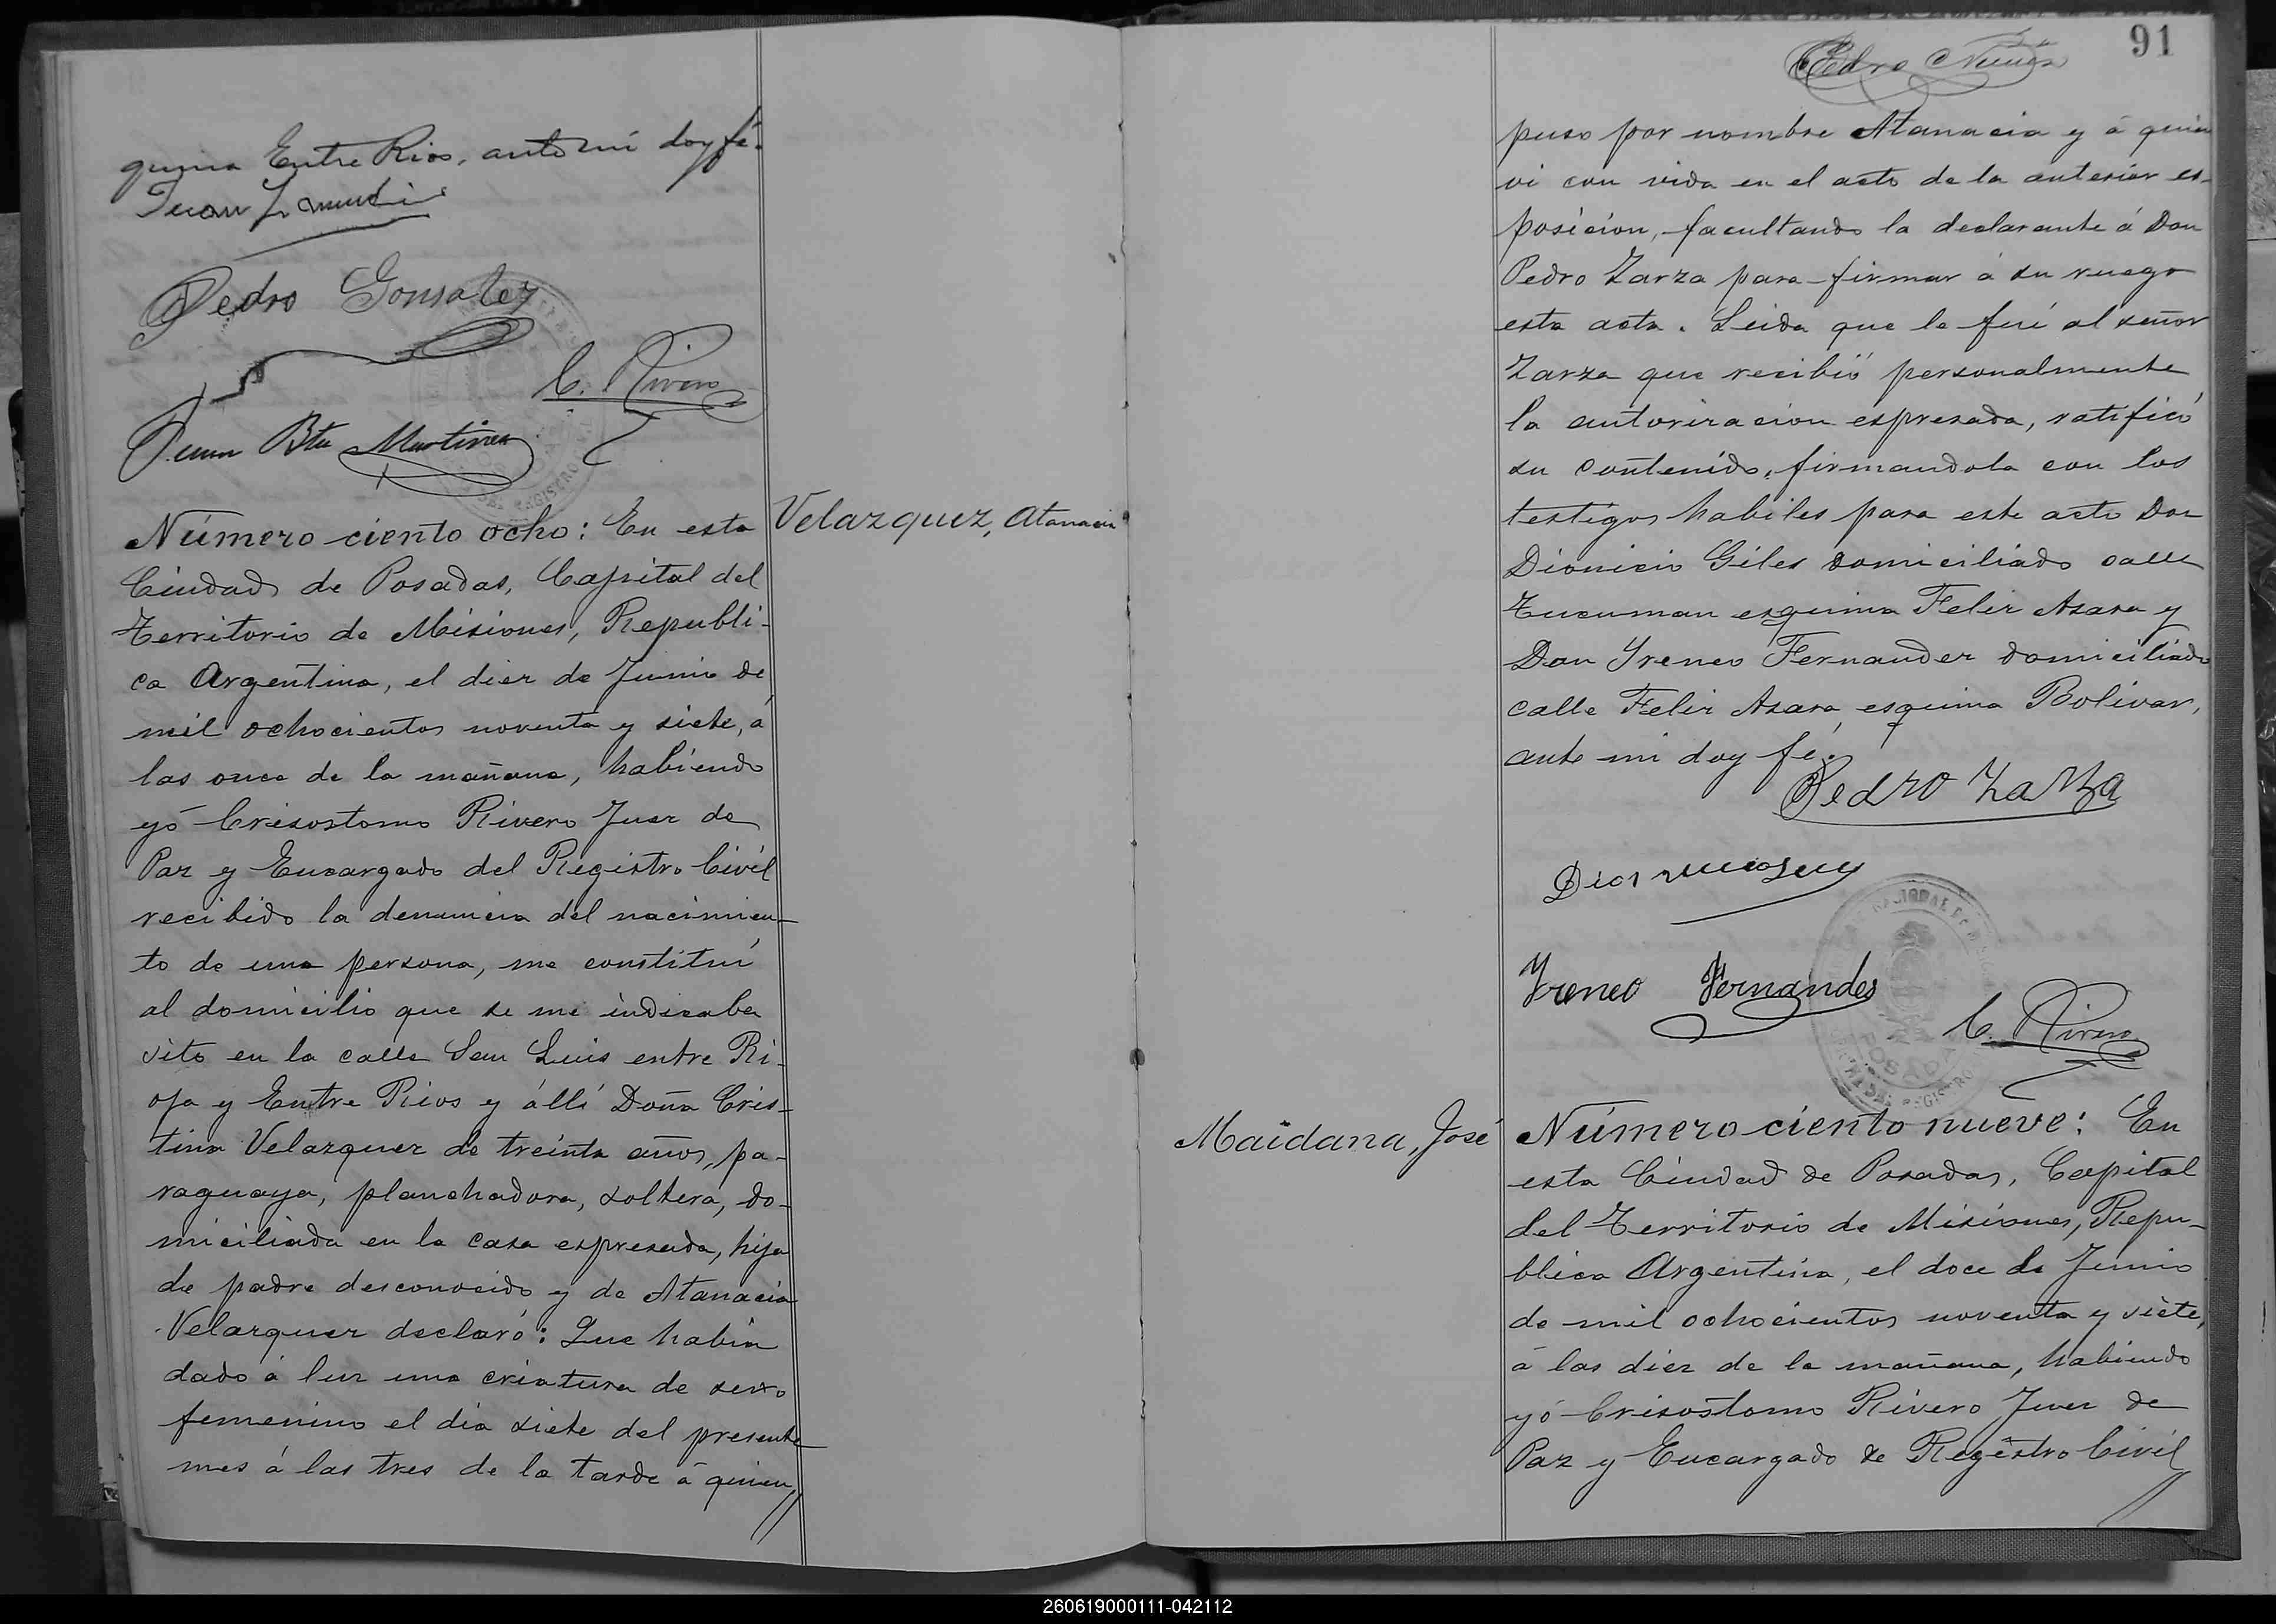 quina Entre Rios, ante mí doy fé.
Juan
Pedro Gonsalez
C. Rivero
Juan Bta Martinez
Número ciento ocho: En esta
Velazquez, Atanacia
Ciudad de Posadas, Capital del
Territorio de Misiones, Republi-
ca Argentina, el diez de Junio de
mil ochocientos noventa y siete, á
las once de la mañana, habiendo
yó Crisostomo Rivero Juez de
Paz y Encargado del Registro Civil
recibido la denuncia del nacimien-
to de una persona, me constituí
al domicilio que se me indicaba
sito en la calle San Luis entre Ri-
oja y Entre Rios y állí Doña Cris-
tina Velazquez de treinta años, pa-
raguaya, planchadora, soltera, do-
miciliada en la casa espresada, hija
de padre desconocido y de Atanacia
Velazquez declaró: Que habia
dado á luz una criatura de sexo
femenino el dia siete del presente
mes á las tres de la tarde á quien
91
Pedro Nuñez
puso por nombre Atanacia y á quien
vi con vida en el acto de la anterior es-
posicion, facultando la declarante á Don
Pedro Zarza para firmar á su ruego
esta acta. Leida que le fué al señor
Zarza que recibió personalmente
la autorizacion espresada, ratificó
su contenido, firmandola con los
testigos habiles para este acto Don
Dionicio Giles domiciliado calle
Tucuman esquina Felix Azara y
Don Yreneo Fernandez domiciliado
calle Felix Azara esquina Bolivar,
ante mi doy fé.
Pedro Zarza
Yreneo Fernandes
C. Rivero
Maidana, José
Número ciento nueve: En
esta Ciudad de Posadas, Capital
del Territorio de Misiones, Repu-
blica Argentina, el doce de Junio
de mil ochocientos noventa y siete,
á las diez de la mañana, habiendo
yó Crisostomo Rivero Juez de
Paz y Encargado de Registro Civil
260619000111-042112